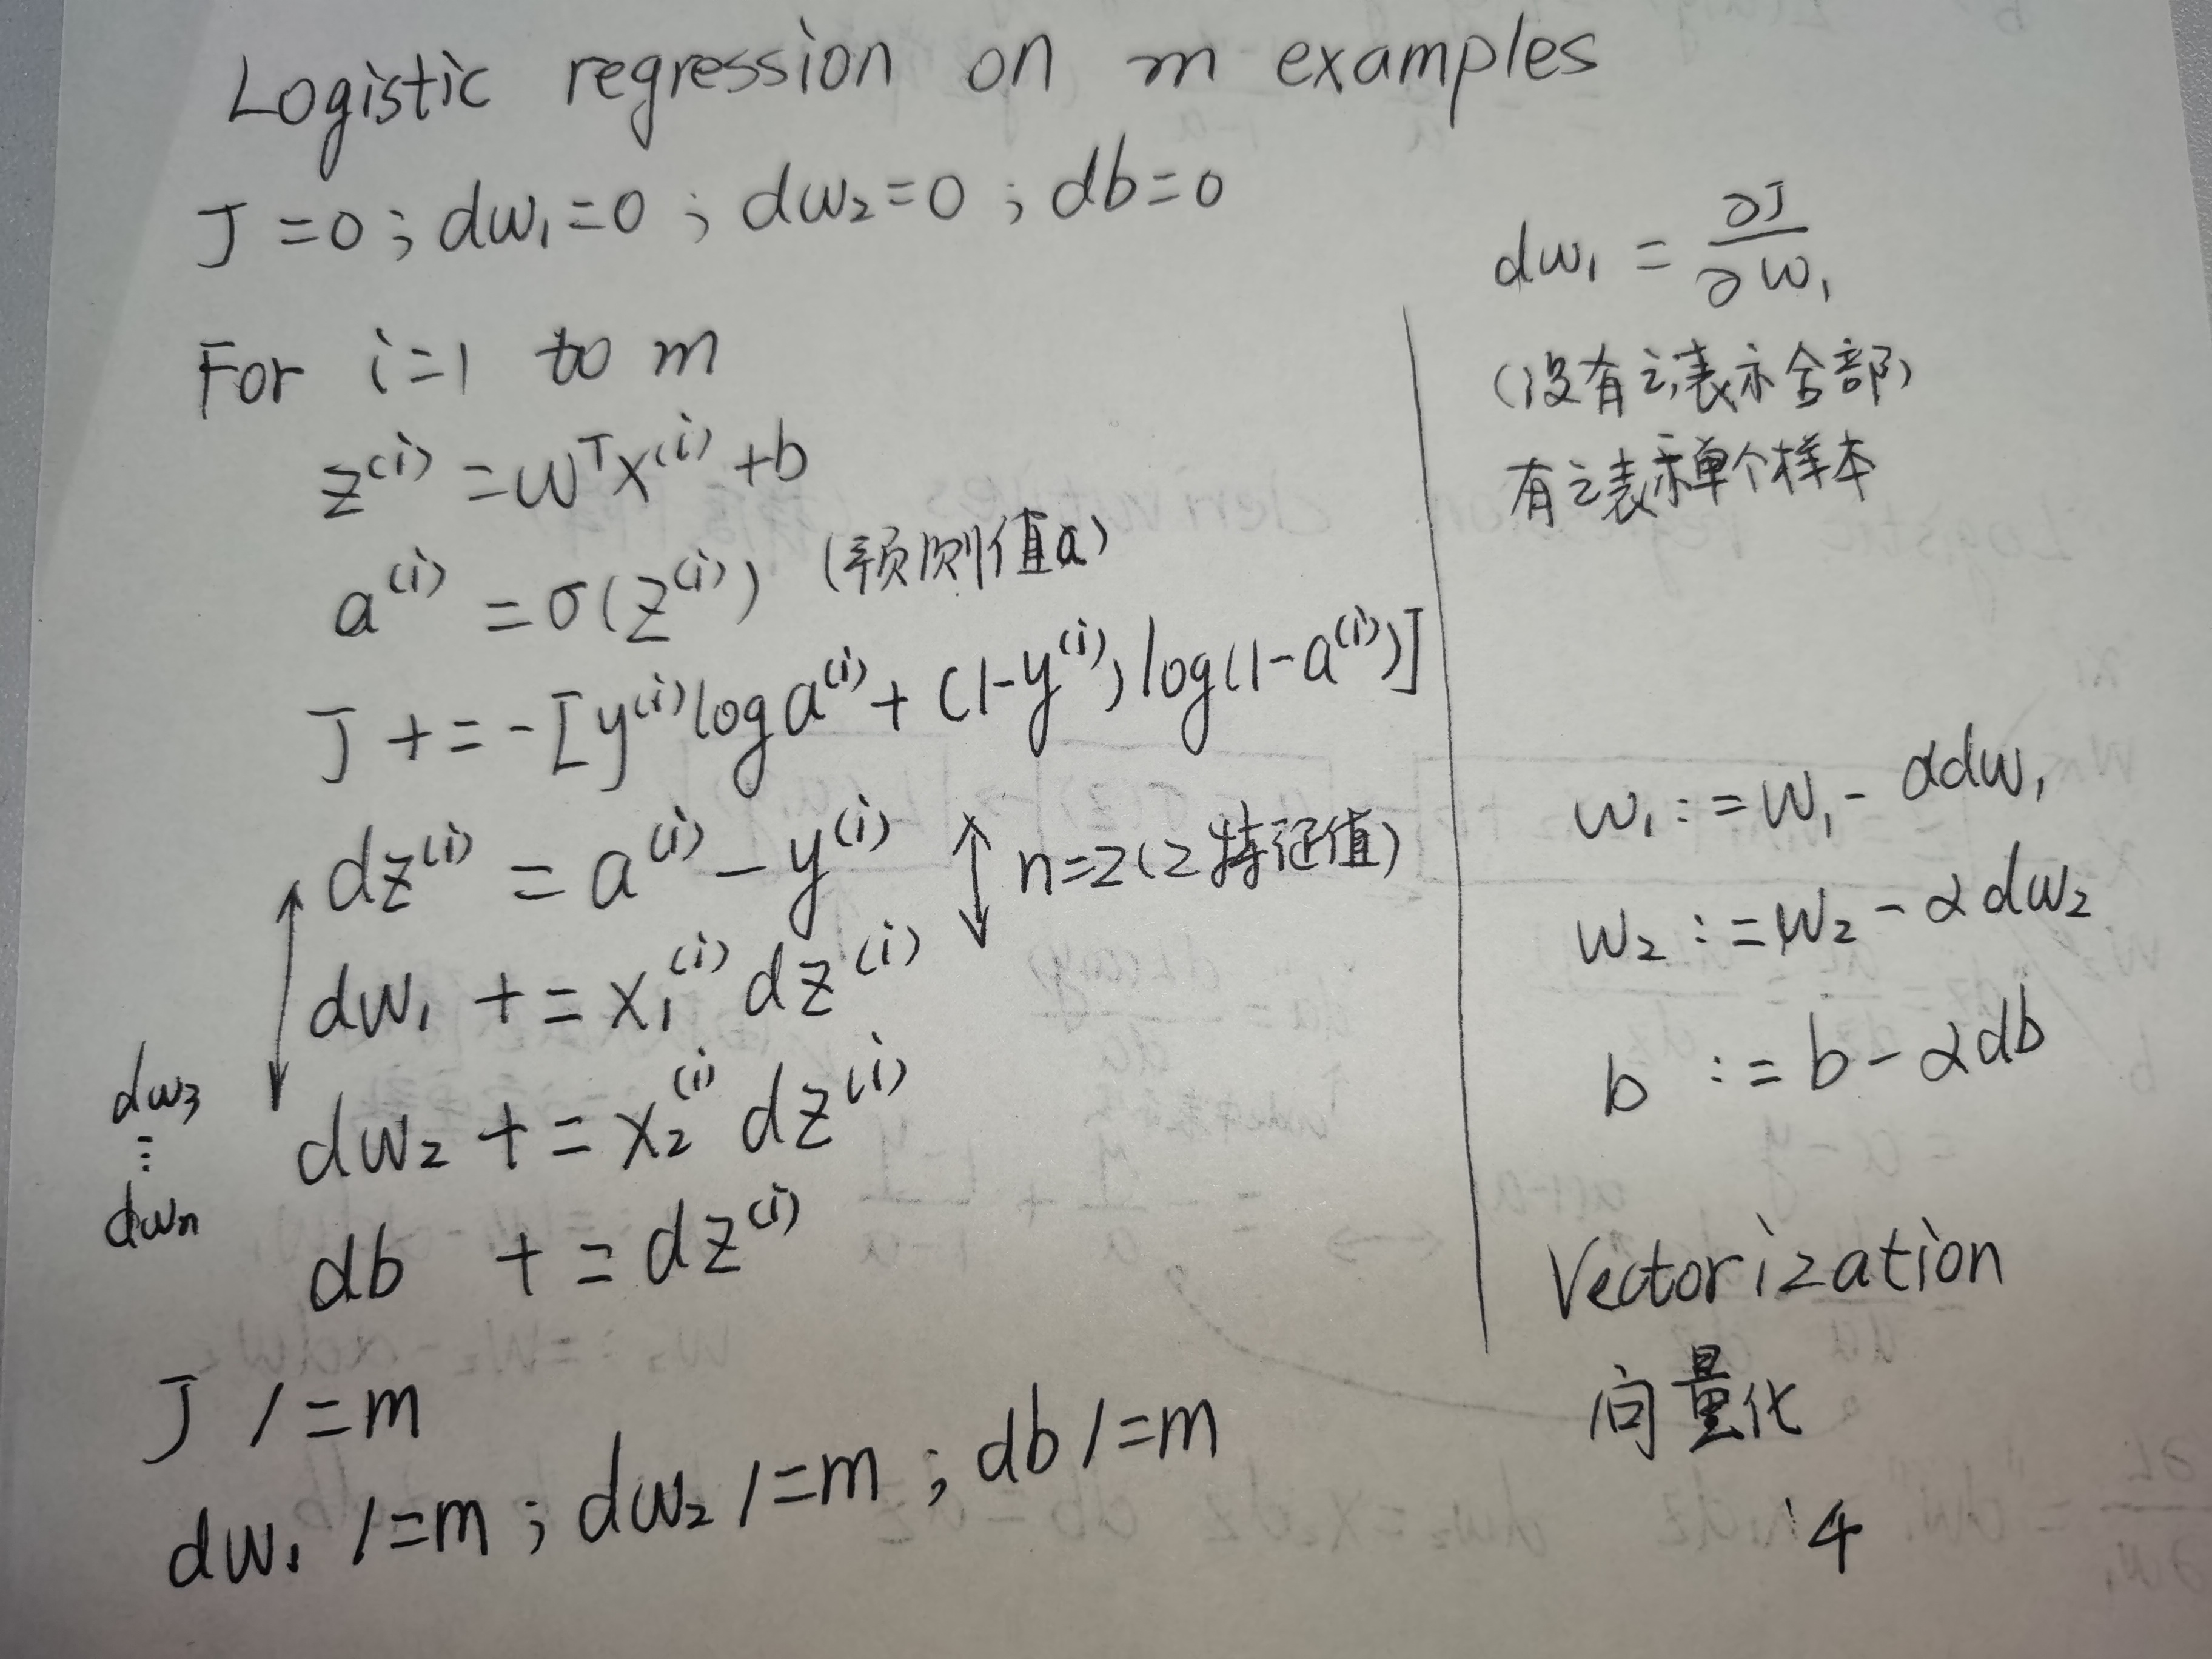 Logistic regression on m examples
J=0; dw₁=0; dw₂=0; db=0
For i=1 to m
z⁽ⁱ⁾=wᵀx⁽ⁱ⁾+b
a⁽ⁱ⁾=σ(z⁽ⁱ⁾) (预测值a)
J+=-[y⁽ⁱ⁾loga⁽ⁱ⁾+(1-y⁽ⁱ⁾)log(1-a⁽ⁱ⁾)]
dz⁽ⁱ⁾=a⁽ⁱ⁾-y⁽ⁱ⁾
n=2(2特征值)
dw₁+=x₁⁽ⁱ⁾dz⁽ⁱ⁾
dw₂+=x₂⁽ⁱ⁾dz⁽ⁱ⁾
dw₃
⋮
dwₙ
db+=dz⁽ⁱ⁾
J/=m
dw₁/=m; dw₂/=m; db/=m
dw₁=∂J/∂w₁
(没有i表示全部)
有i表示单个样本
w₁:=w₁-αdw₁
w₂:=w₂-αdw₂
b:=b-αdb
Vectorization
向量化
4